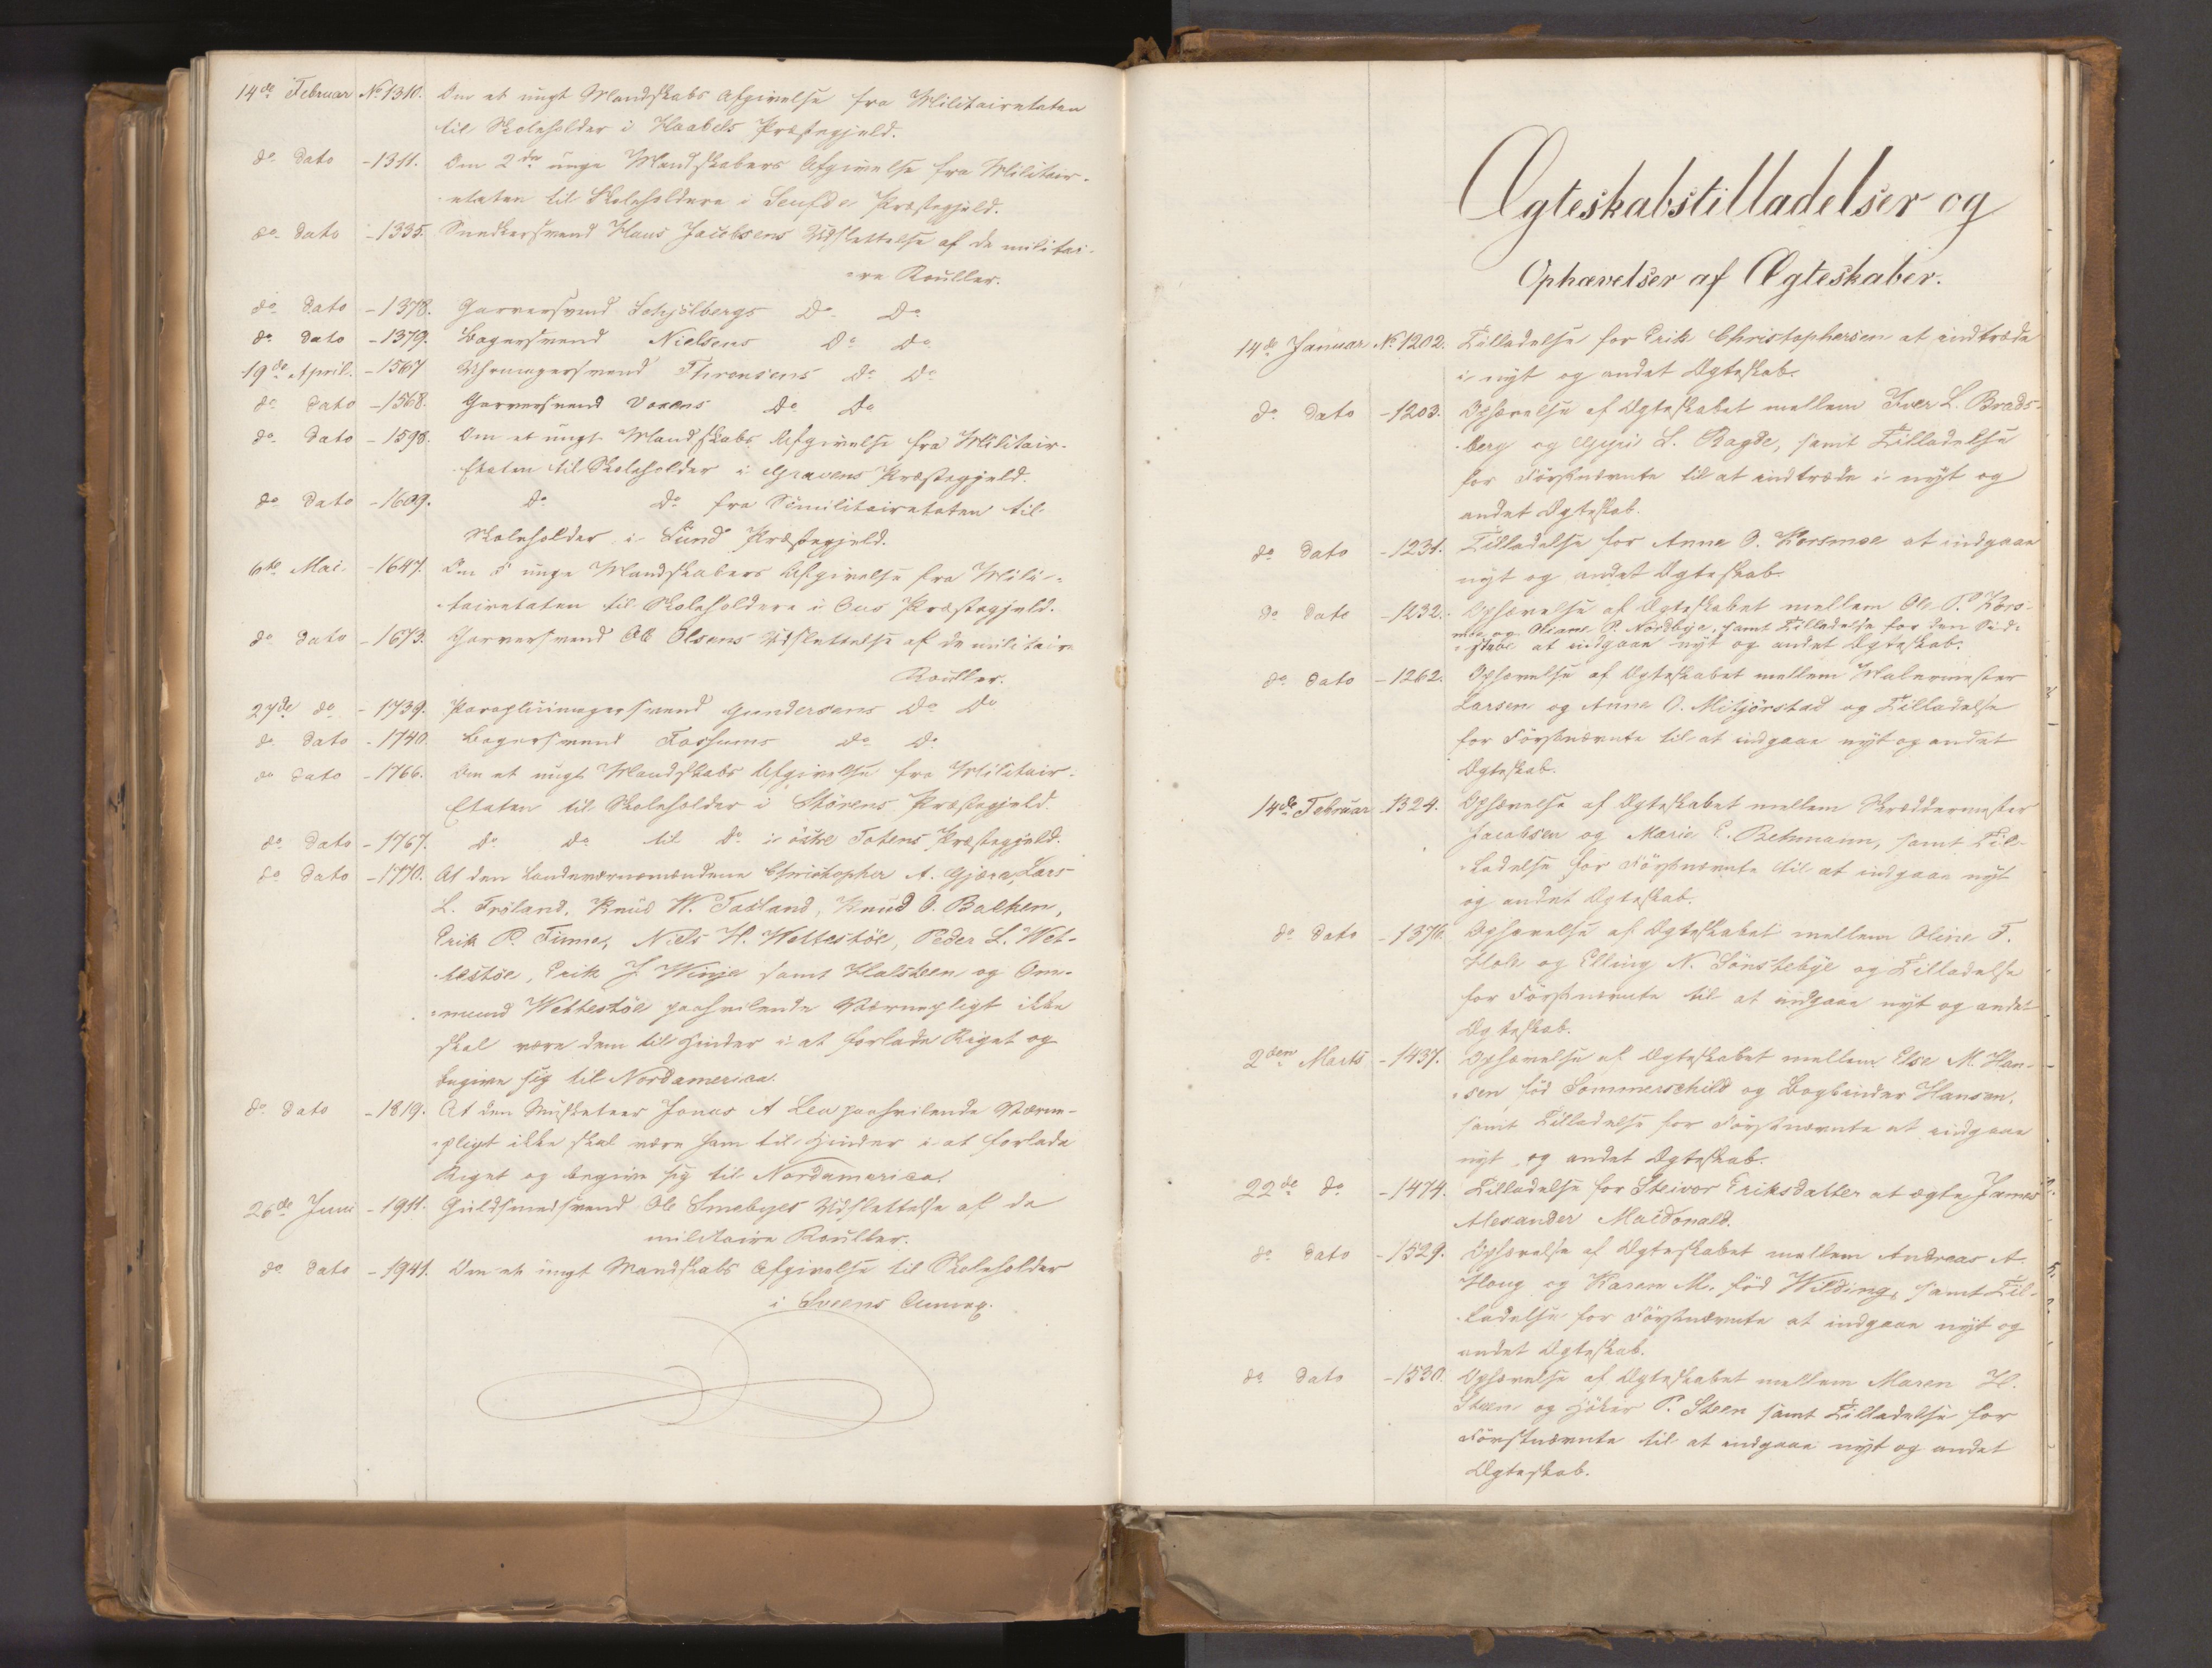 14de Februar No 1310. Om et ungt Mandskabs Afgivelse fra Militairetaten
til Skoleholder i Haabels Præstegjeld.
do dato - 1311. Om 2de unge Mandskabers Afgivelse fra Militair-
etaten til Skoleholdere i Præstegjeld.
do dato - 1335. Snedkersvend Hans Jacobsens Udslettelse af de militai-
re Rouller.
do dato - 1378. Garversvend Schjölbergs Do Do
do dato - 1379. Bagersvend Nielsens Do Do
19de April. - 1567 Uhrmagersvend Thrensens Do Do
do dato - 1568. Garversvend Voxens Do Do
do dato - 1598. Om et ungt Mandskabs Afgivelse fra Militair-
Etaten til Skoleholder i Gravens Præstegjeld.
do dato - 1609. Do Do fra Sömilitairetaten til
Skoleholder i Sund Præstegjeld.
6te Mai. - 1647. Om 5 unge Mandskabers Afgivelse fra Mili-
tairetaten til Skoleholdere i Ous Præstegjeld.
do dato - 1673. Garversvend Ole Olsens Udslettelse af de militaire
Rouller.
27de do - 1739. Paraplüimagersvend Gundersens Do Do
do dato - 1740 Bagersvend Fossums Do Do
do dato - 1766. Om et ungt Mandskabs Afgivelse fra Militair-
Etaten til Skoleholder i Störens Præstegjeld.
do dato - 1767. Do Do til Do i östre Totens Præstegjeld.
do dato - 1770. At den Landeværnsmændene Christopher A. Gjæra, Lars
L. Fröland, Knud W. Tasland, Knud O. Balken,
Erik P. Finne, Niels H. Wettestöe, Peder L. Wet-
testöe, Erik J. Winje samt Halsteen og Om-
mund Wettestöe paahvilende Værnepligt ikke
skal være dem til Hinder i at forlade Riget og
begive sig til Nordamerica.
do dato - 1819. At den Musketeer Jonas A Lea paahvilende Værne-
pligt ikke skal være ham til Hinder i at forlade
Riget og begive sig til Nordamerica.
26de Juni - 1911. Guldsmedsvend Ole Smebyes Udslettelse af de
militaire Rouller.
do dato - 1941. Om et ungt Mandskabs Afgivelse til Skoleholder
i Sveens Annex.
Ægteskabstilladelser og
Ophævelser af Ægteskaber.
14de Januar No 1202. Tilladelse for Erik Christophersen at indtræde
i nyt og andet Ægteskab.
do dato - 1203. Ophævelse af Ægteskabet mellem Iver L. Brads-
berg og Gyri L. Bagde, samt Tilladelse
for Förstnævnte til at indtræde i nyt og
andet Ægteskab.
do dato - 1231. Tilladelse for Anne O. Korsmoe at indgaae
nyt og andet Ægteskab.
do dato - 1232. Ophævelse af Ægteskabet mellem Ole P. Kors-
moe og Oliane P. Nordbye, samt Tilladelse for den Sid-
ste at indgaae nyt og andet Ægteskab.
do dato - 1262. Ophævelse af Ægteskabet mellem Malermester
Larsen og Anne O. Mitjörstad og Tilladelse
for Förstnævnte til at indgaae nyt og andet
Ægteskab.
14de Februar 1324. Ophævelse af Ægteskabet mellem Skræddermester
Jacobsen og Marie E. Behmann, samt Til-
ladelse for Förstnævnte til at indgaae nyt
og andet Ægteskab.
do dato - 1376. Ophævelse af Ægteskabet mellem Oline T.
Hole og Elling N. Sönstebye og Tilladelse
for Förstnævnte til at indgaae nyt og andet
Ægteskab.
2den Marts - 1437. Ophævelse af Ægteskabet mellem Else M. Han-
sen, föd Sommerschild og Bogbinder Hansen,
samt Tilladelse for Förstnævnte at indgaae
nyt og andet Ægteskab.
22de do - 1474. Tilladelse for Steivor Eriksdatter at ægte James
Alexander Macdonald.
do dato - 1529. Ophævelse af Ægteskabet mellem Andreas A.
Houg og Karen M. föd Wilding, samt Til-
ladelse for Förstnævnte at indgaae nyt og
andet Ægteskab.
do dato - 1530. Ophævelse af Ægteskabet mellem Maren H.
Steen og Höker P. Steen samt Tilladelse for
Förstnævnte til at indgaae nyt og andet
Ægteskab.